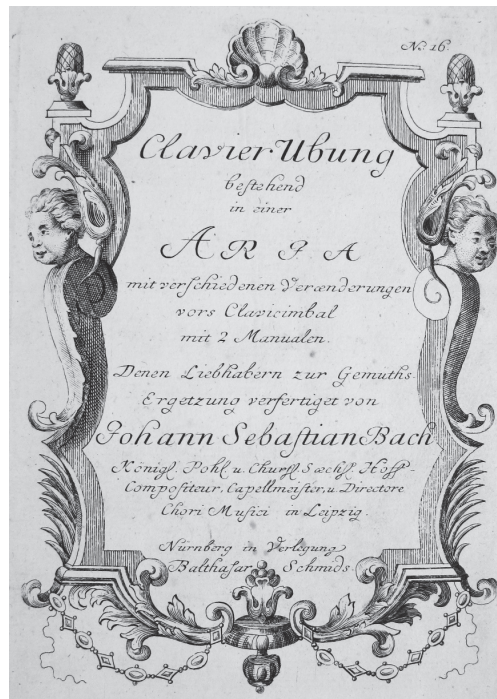 No. 16.
Clavier Ubung
bestehend
in einer
ARIA
mit verschiedenen Verænderungen
vors Clavicimbal
mit 2 Manualen.
Denen Liebhabern zur Gemüths-
Ergetzung verfertiget von
Johann Sebastian Bach
Königl. Pohl. u. Churfl. Sæchs. Hoff-
Compositeur, Capellmeister, u. Directore
Chori Musici in Leipzig.
Nürnberg in Verlegung
Balthasar Schmids